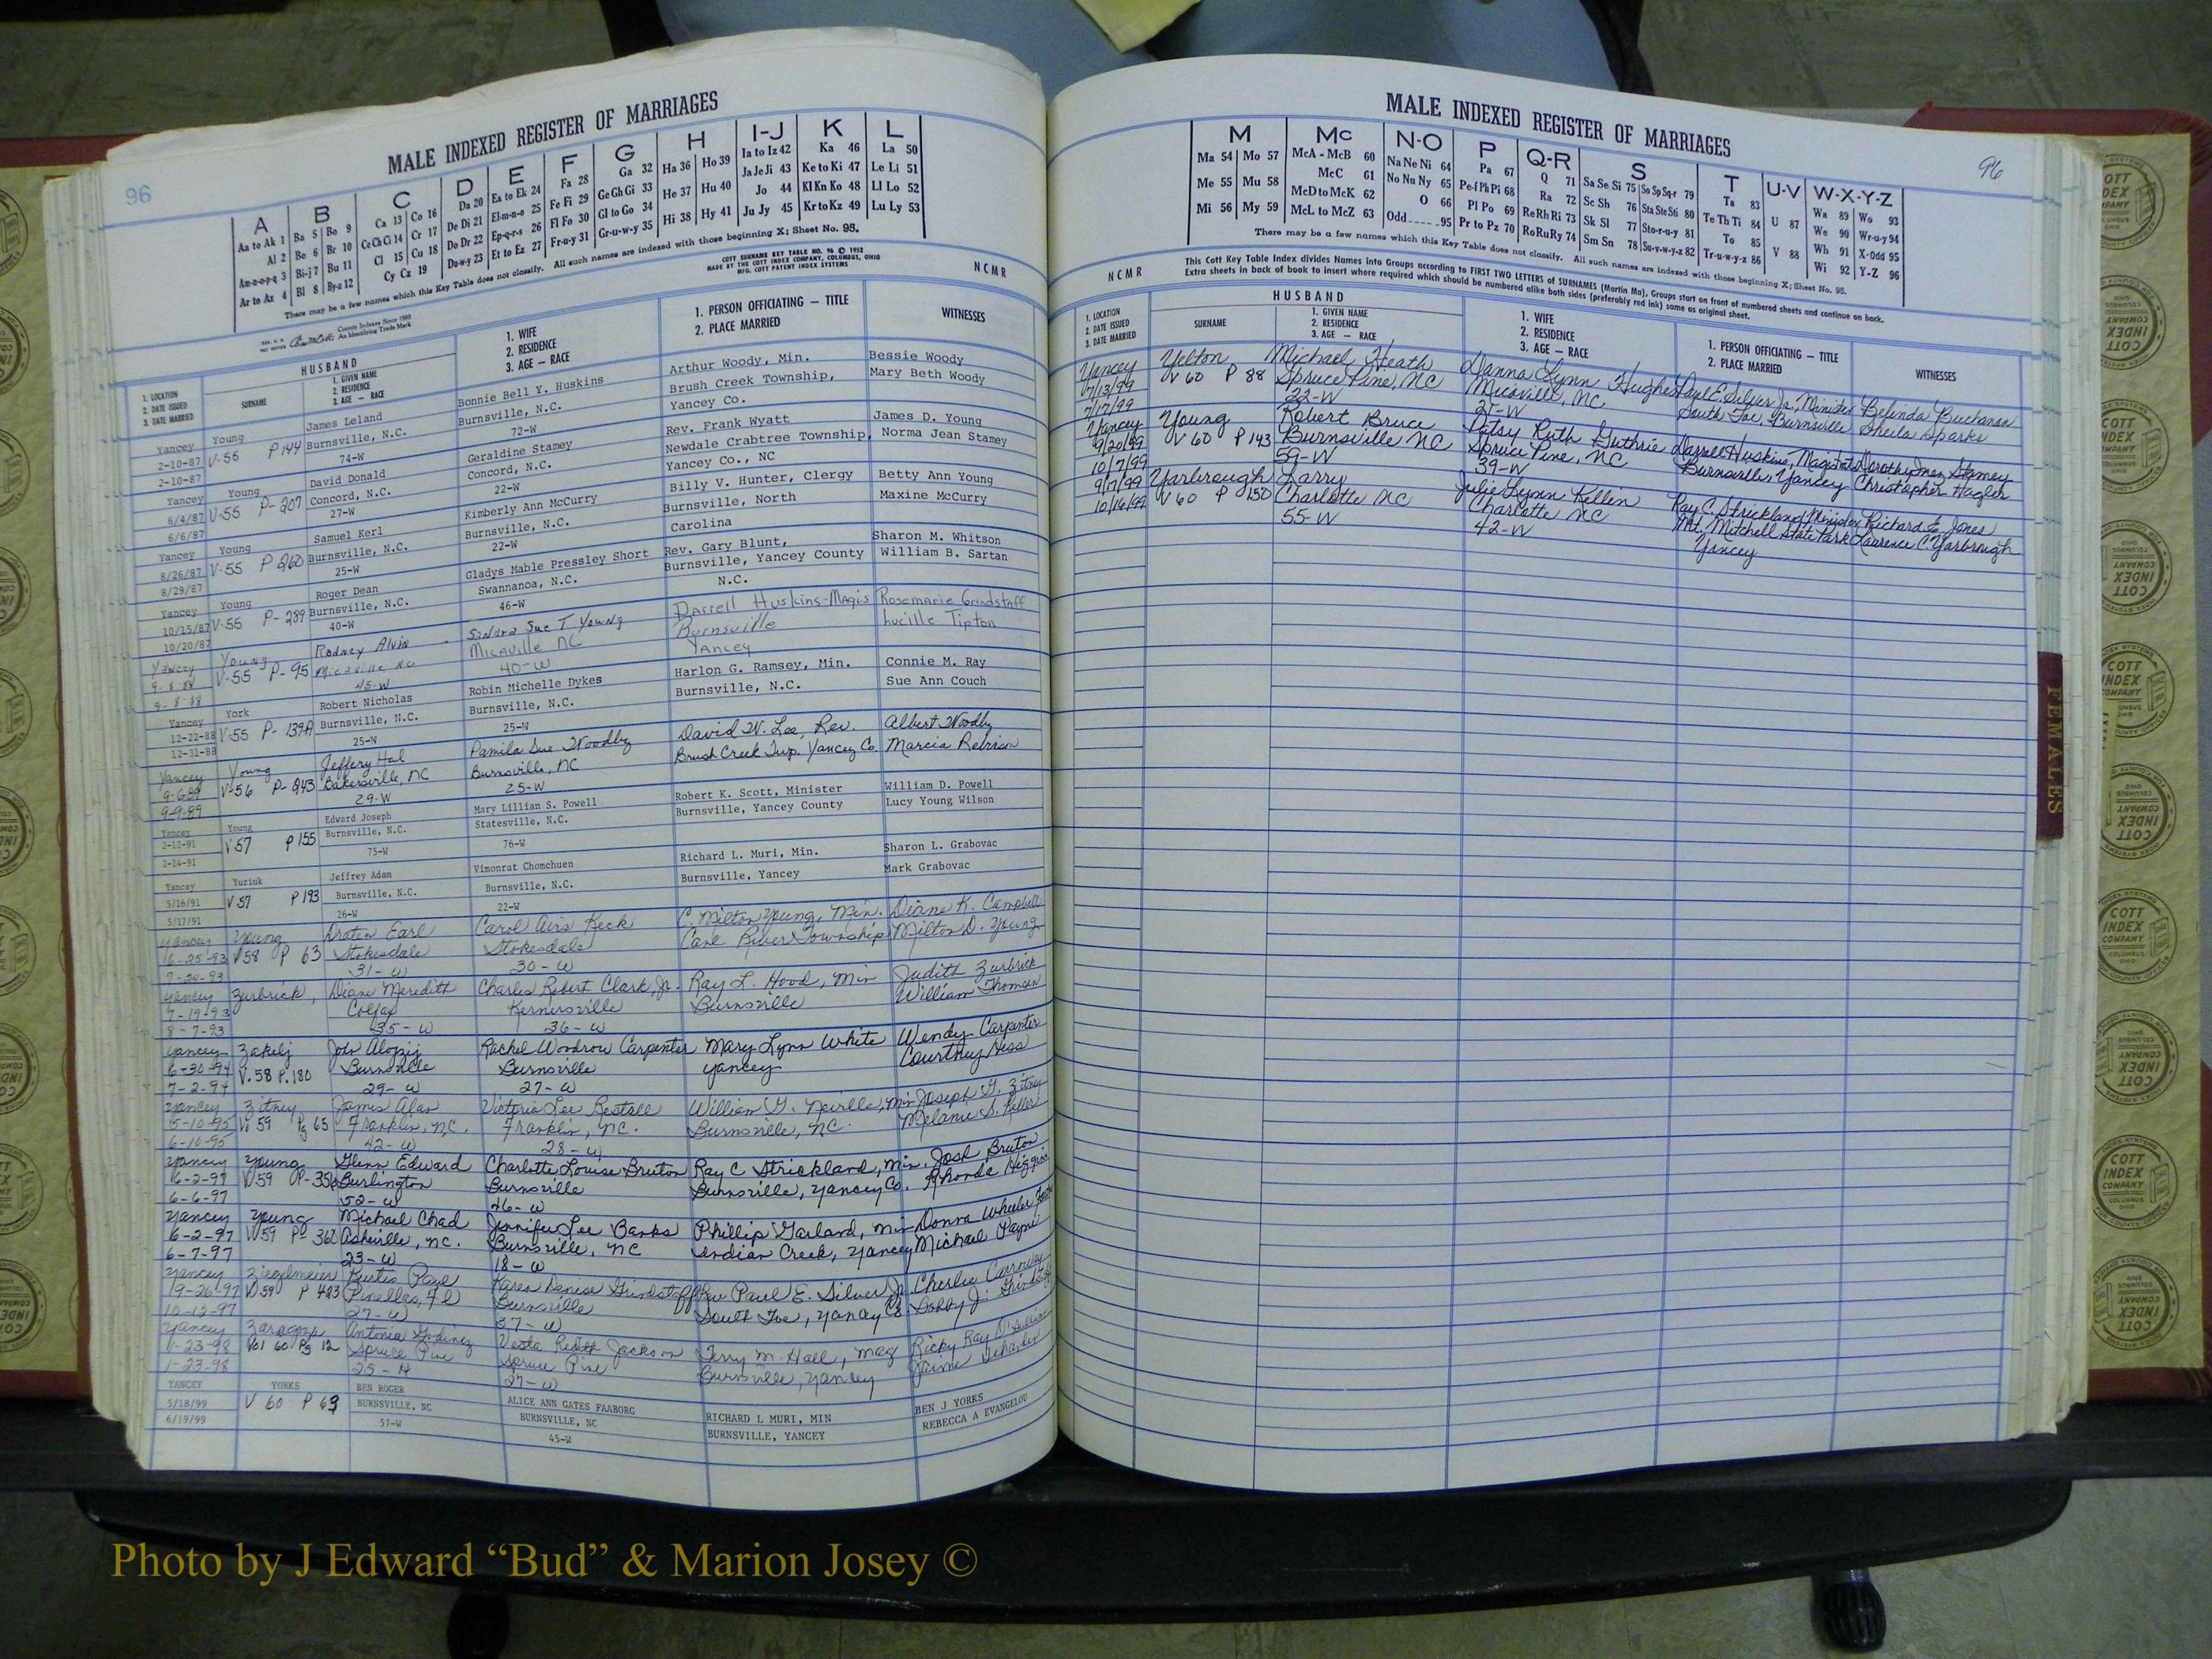 96
MALE INDEXED REGISTER OF MARRIAGES
A B C D E F G H I-J K L
Aa to Ak 1 Ba 5 Bo 9 Ca 13 Co 16 Da 20 Ea to Ek 24 Fa 28 Ga 32 Ha 36 Ho 39 Ia to Iz 42 Ka 46 La 50
Al 2 Be 6 Br 10 Ce Ch Ci 14 Cr 17 De Di 21 El-m-n-o 25 Fe Fi 29 Ge Gh Gi 33 He 37 Hu 40 Ja Je Ji 43 Ke to Ki 47 Le Li 51
Am-n-o-p-q 3 Bi-j 7 Bu 11 Cl 15 Cu 18 Do Dr 22 Ep-q-r-s 26 Fl Fo 30 Gl to Go 34 Hi 38 Hy 41 Jo 44 Kl Kn Ko 48 Ll Lo 52
Ar to Az 4 Bl 8 By-z 12 Cy Cz 19 Du-w-y 23 Et to Ez 27 Fr-u-y 31 Gr-u-w-y 35 Ju Jy 45 Kr to Kz 49 Lu Ly 53
There may be a few names which this Key Table does not classify. All such names are indexed with those beginning X; Sheet No. 95.
COTT SURNAME KEY TABLE NO. 96 © 1952
MADE BY THE COTT INDEX COMPANY, COLUMBUS, OHIO
MFG. COTT PATENT INDEX SYSTEMS
NCMR
County Indexes Since 1888
An Identifying Trade Mark
1. LOCATION
2. DATE ISSUED
3. DATE MARRIED
HUSBAND
SURNAME
1. GIVEN NAME
2. RESIDENCE
3. AGE — RACE
1. WIFE
2. RESIDENCE
3. AGE — RACE
1. PERSON OFFICIATING — TITLE
2. PLACE MARRIED
WITNESSES
Yancey Young James Leland Bonnie Bell Y. Huskins Arthur Woody, Min. Bessie Woody
2-10-87 V-55 P 144 Burnsville, N.C. Burnsville, N.C. Brush Creek Township, Mary Beth Woody
2-10-87 74-W 72-W Yancey Co.
Yancey Young David Donald Geraldine Stamey Rev. Frank Wyatt James D. Young
6/4/87 V-55 P-207 Concord, N.C. Concord, N.C. Newdale Crabtree Township, Norma Jean Stamey
6/6/87 27-W 22-W Yancey Co., NC
Yancey Young Samuel Kerl Kimberly Ann McCurry Billy V. Hunter, Clergy Betty Ann Young
8/26/87 V-55 P 260 Burnsville, N.C. Burnsville, N.C. Burnsville, North Maxine McCurry
8/29/87 25-W 22-W Carolina
Yancey Young Roger Dean Gladys Mable Pressley Short Rev. Gary Blunt, Sharon M. Whitson
10/15/87 V-55 P-289 Burnsville, N.C. Swannanoa, N.C. Burnsville, Yancey County William B. Sartan
10/20/87 40-W 46-W N.C.
Yancey Young Rodney Alvin Sandra Sue T Young Darrell Huskins-Magis Rosemarie Grindstaff
9-8-88 V-55 P-95 Micaville NC Micaville NC Burnsville Lucille Tipton
9-8-88 45-W 40-W Yancey
Yancey York Robert Nicholas Robin Michelle Dykes Harlon G. Ramsey, Min. Connie M. Ray
12-22-88 V-55 P-139A Burnsville, N.C. Burnsville, N.C. Burnsville, N.C. Sue Ann Couch
12-31-88 25-W 25-W
Yancey Young Jeffery Hal Pamila Sue Woodby David W. Lee, Rev. Albert Woodby
9-6-89 V-56 P-243 Bakersville, NC Burnsville, NC Brush Creek Twp. Yancey Co. Marcia
9-9-89 29-W 25-W
Yancey Young Edward Joseph Mary Lillian S. Powell Robert K. Scott, Minister William D. Powell
2-12-91 V 57 P 155 Burnsville, N.C. Statesville, N.C. Burnsville, Yancey County Lucy Young Wilson
2-14-91 75-W 76-W
Yancey Yuziuk Jeffrey Adam Vimonrat Chomchuen Richard L. Muri, Min. Sharon L. Grabovac
5/16/91 V 57 P 193 Burnsville, N.C. Burnsville, N.C. Burnsville, Yancey Mark Grabovac
5/17/91 26-W 22-W
Yancey Young Earl Carol Keck C. Milton Young, Min. Diane K. Campbell
6-25-93 V58 P 63 Stokesdale Stokesdale Cane River Township Milton D. Young
7-24-93 31-W 30-W
Yancey Zurbrick, Diane Meredith Charles Robert Clark, Jr. Ray L. Hood, Min Judith Zurbrick
7-19-93 Colfax Kernersville Burnsville William Thomsen
8-7-93 35-W 36-W
Yancey Zakelj John Alojzij Rachel Woodrow Carpenter Mary Lynn White Wendy Carpenter
6-30-94 V.58 P.180 Burnsville Burnsville Yancey Courtney Hess
7-2-94 29-W 27-W
Yancey Zitney James Alan Victoria Lee Restall William G. Neville, Min Joseph G. Zitney
5-10-95 V 59 Pg 65 Franklin, N.C. Franklin, N.C. Burnsville, N.C. Melanie S. Keller
6-10-95 42-W 28-W
Yancey Young Glenn Edward Charlotte Louise Bruton Ray C Strickland, Min. Josh Bruton
6-2-97 V59 P-356 Burlington Burnsville Burnsville, Yancey Co. Rhonda
6-6-97 52-W 46-W
Yancey Young Michael Chad Jennifer Lee Banks Phillip Garland, Min Donna Wheeler
6-2-97 V59 P-362 Asheville, N.C. Burnsville, NC Indian Creek, Yancey Michael Payne
6-7-97 23-W 18-W
Yancey Ziegelmeier Paul Karen Denise Grindstaff Rev Paul E. Silver Jr.
9-26-97 V 59 P 423 Pinellas, Fl Burnsville South Toe, Yancey Co. J.
10-12-97 27-W 37-W
Yancey Antonio Godinez Vesta Jackson Terry M. Hall, Mag Ricky Ray
1-23-98 Vol 60 Pg 12 Spruce Pine Spruce Pine Burnsville, Yancey
1-23-98 25-H 27-W
YANCEY YORKS BEN ROGER ALICE ANN GATES FAABORG RICHARD L MURI, MIN BEN J YORKS
5/18/99 V 60 P 63 BURNSVILLE, NC BURNSVILLE, NC BURNSVILLE, YANCEY REBECCA A EVANGELOU
6/19/99 57-W 45-W
96
MALE INDEXED REGISTER OF MARRIAGES
M Mc N-O P Q-R S T U-V W-X-Y-Z
Ma 54 Mo 57 McA - McB 60 Na Ne Ni 64 Pa 67 Q 71 Sa Se Si 75 So Sp Sq-r 79 Ta 83 U 87 Wa 89 Wo 93
Me 55 Mu 58 McC 61 No Nu Ny 65 Pe-f Ph Pi 68 Ra 72 Sc Sh 76 Sta Ste Sti 80 Te Th Ti 84 V 88 We 90 Wr-u-y 94
Mi 56 My 59 McD to McK 62 O 66 Pl Po 69 Re Rh Ri 73 Sk Sl 77 Sto-r-u-y 81 To 85 Wh 91 X-Odd 95
McL to McZ 63 Odd 95 Pr to Pz 70 Ro Ru Ry 74 Sm Sn 78 Su-v-w-y-z 82 Tr-u-w-y-z 86 Wi 92 Y-Z 96
There may be a few names which this Key Table does not classify. All such names are indexed with those beginning X; Sheet No. 95.
This Cott Key Table Index divides Names into Groups according to FIRST TWO LETTERS of SURNAMES (Martin Ma), Groups start on front of numbered sheets and continue on back.
Extra sheets in back of book to insert where required which should be numbered alike both sides (preferably red ink) same as original sheet.
NCMR
1. LOCATION
2. DATE ISSUED
3. DATE MARRIED
HUSBAND
SURNAME
1. GIVEN NAME
2. RESIDENCE
3. AGE — RACE
1. WIFE
2. RESIDENCE
3. AGE — RACE
1. PERSON OFFICIATING — TITLE
2. PLACE MARRIED
WITNESSES
Yancey Yelton Michael Heath Danna Lynn Hughes Paul E. Silver Jr., Minister Belinda Buchanan
7/13/99 V 60 P 88 Spruce Pine, NC Micaville, NC South Toe, Burnsville Sheila Sparks
7/17/99 22-W 21-W
Yancey Young Robert Bruce Patsy Ruth Guthrie Darrell Huskins, Magistrate Dorothy Inez Stamey
9/20/99 V 60 P 143 Burnsville NC Spruce Pine, NC Burnsville, Yancey Christopher Hagler
10/7/99 59-W 39-W
9/17/99 Yarbrough Larry Julie Lynn Kellin Ray C. Strickland, Minister Richard E. Jones
10/16/99 V 60 P 150 Charlotte NC Charlotte NC Mt. Mitchell State Park Laurence C. Yarbrough
55-W 42-W Yancey
FEMALES
COTT INDEX COMPANY
Photo by J Edward “Bud” & Marion Josey ©